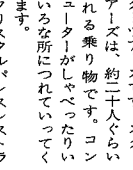 アーズは、約二十人ぐらい
れる乗り物です。コン
ューターがしゃべったりい
いろな所につれていってく
ます。